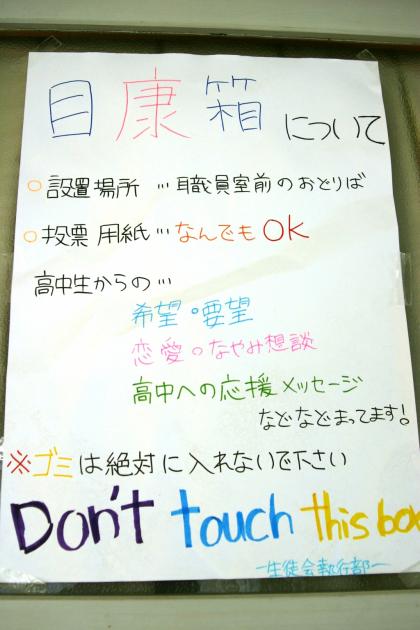 目康箱について
○設置場所…職員室前のおどりば
○投票用紙…なんでもOK
高中生からの…
希望・要望
恋愛・のなやみ想談
高中への応援メッセージ
などなどまってます!
※ゴミは絶対に入れないで下さい
Don't touch this box
—生徒会執行部—